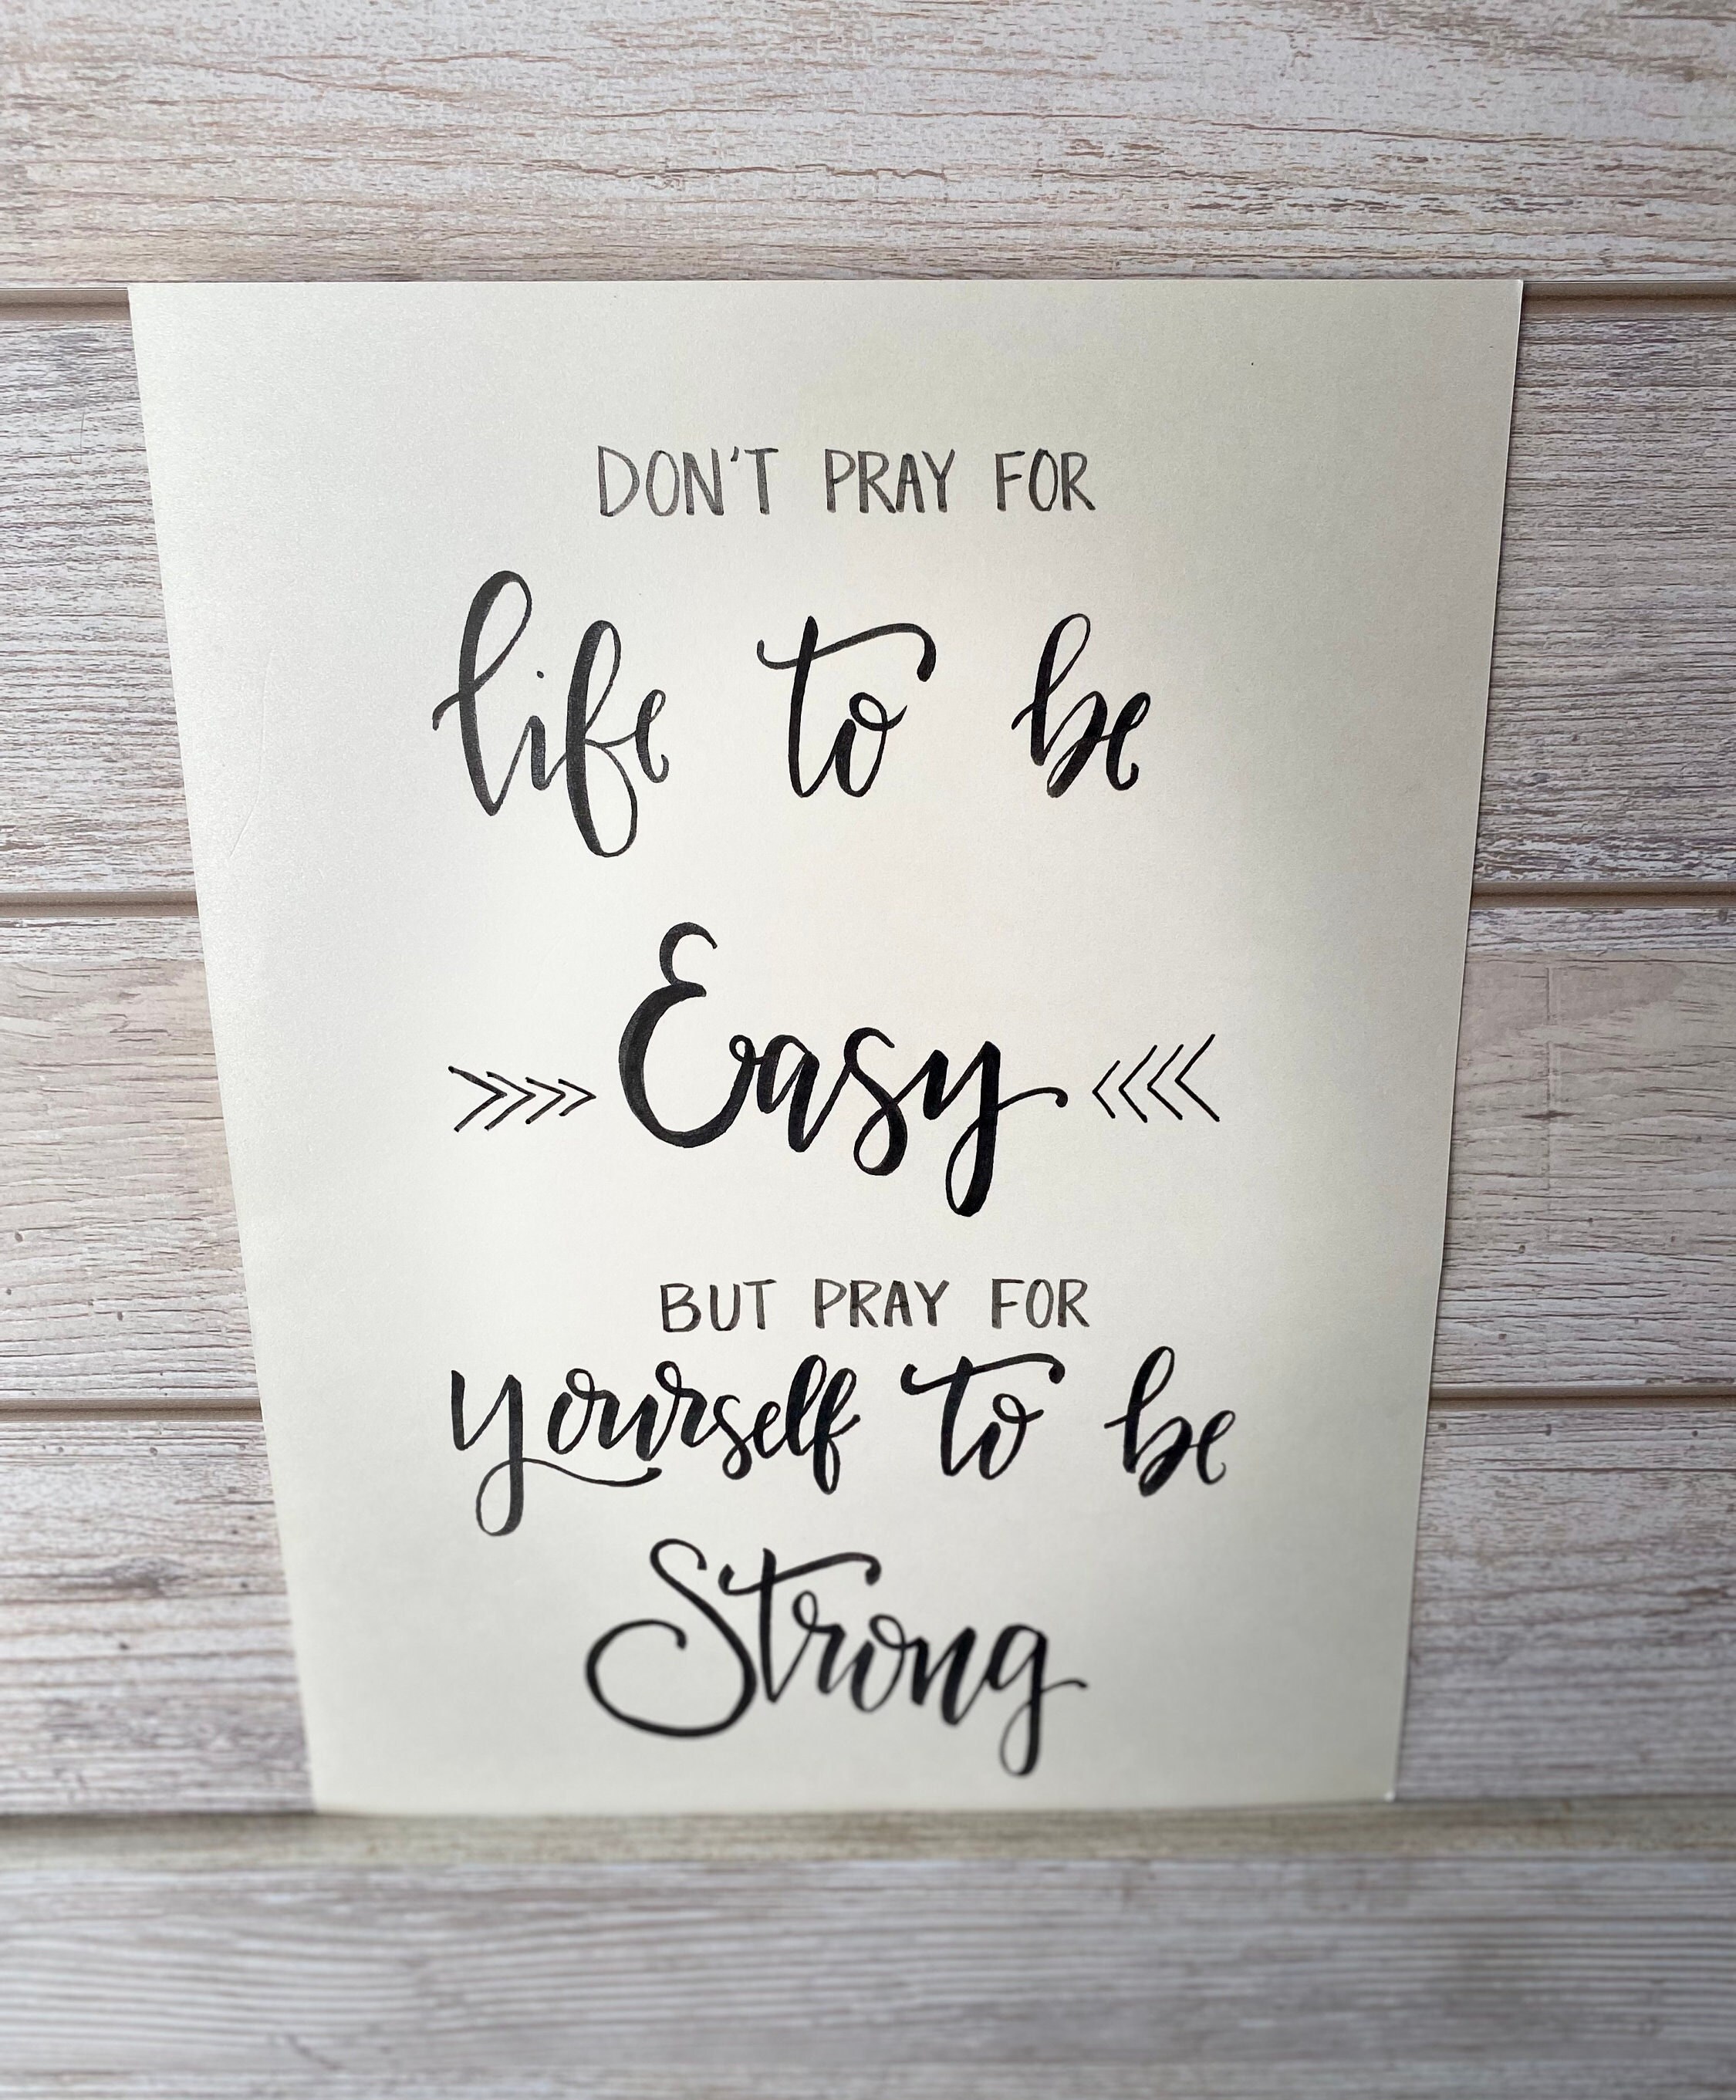 DON'T PRAY FOR
life to be
Easy
BUT PRAY FOR
yourself to be
Strong